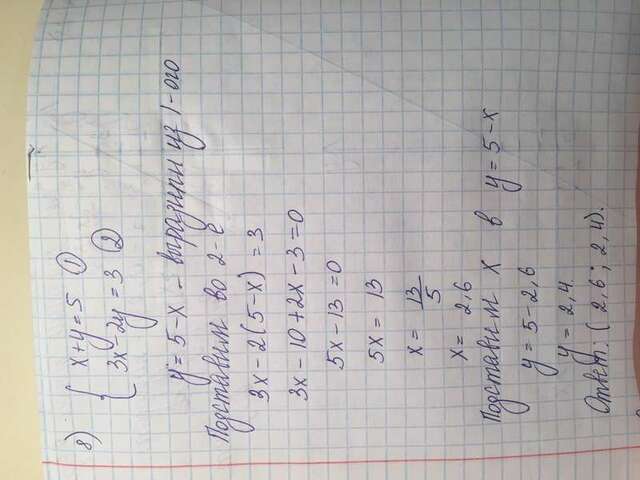 8) { x+y=5 ①
3x-2y=3 ②
y=5-x - выразили из 1-ого
Подставим во 2-е
3x-2(5-x)=3
3x-10+2x-3=0
5x-13=0
5x=13
x=13/5
x=2,6
Подставим x в y=5-x
y=5-2,6
y=2,4.
Ответ: (2,6; 2,4).